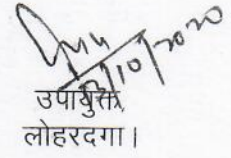 12/10/2020
उपायुक्त,
लोहरदगा।